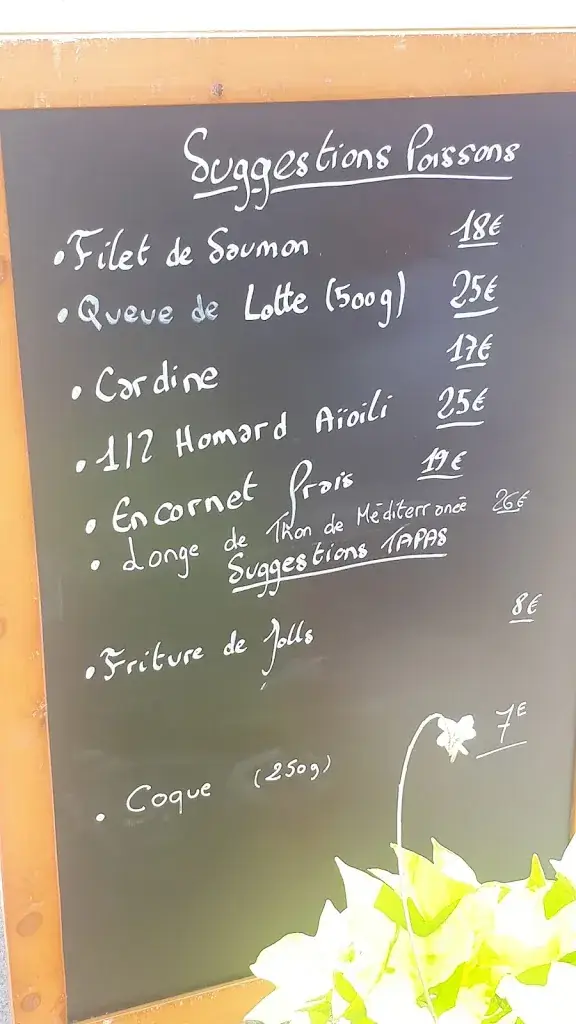 Suggestions Poissons
• Filet de Saumon 18€
• Queue de Lotte (500g) 25€
• Cardine 17€
• 1/2 Homard Aïoili 25€
• Encornet frais 19€
• Longe de Thon de Méditerranée 26€
Suggestions TAPAS
• Friture de Jolls 8€
• Coque (250g) 7€